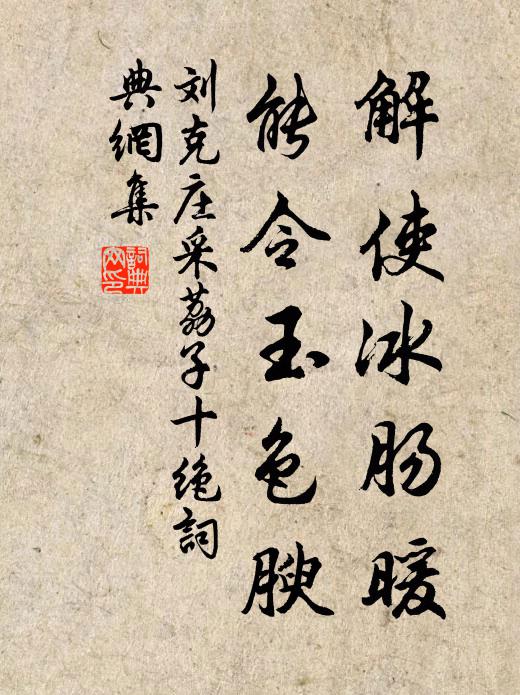 解使冰肠暖
能令玉色腴
刘克庄采荔子十绝詞
典網集
詞典网印